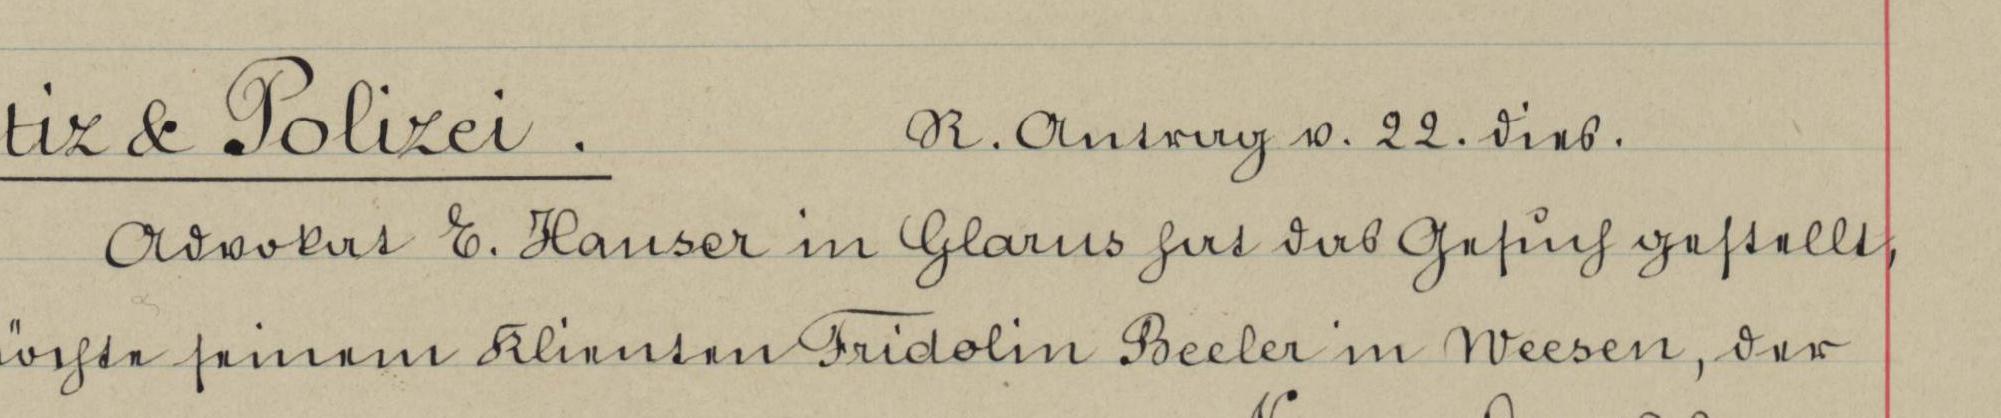 tiz & Polizei. R. Antrag v. 22. dies.
Advokat E. Hauser in Glarus hat das Gesuch gestellt,
öchte seinem Klienten Fridolin Beeler in Weesen, der